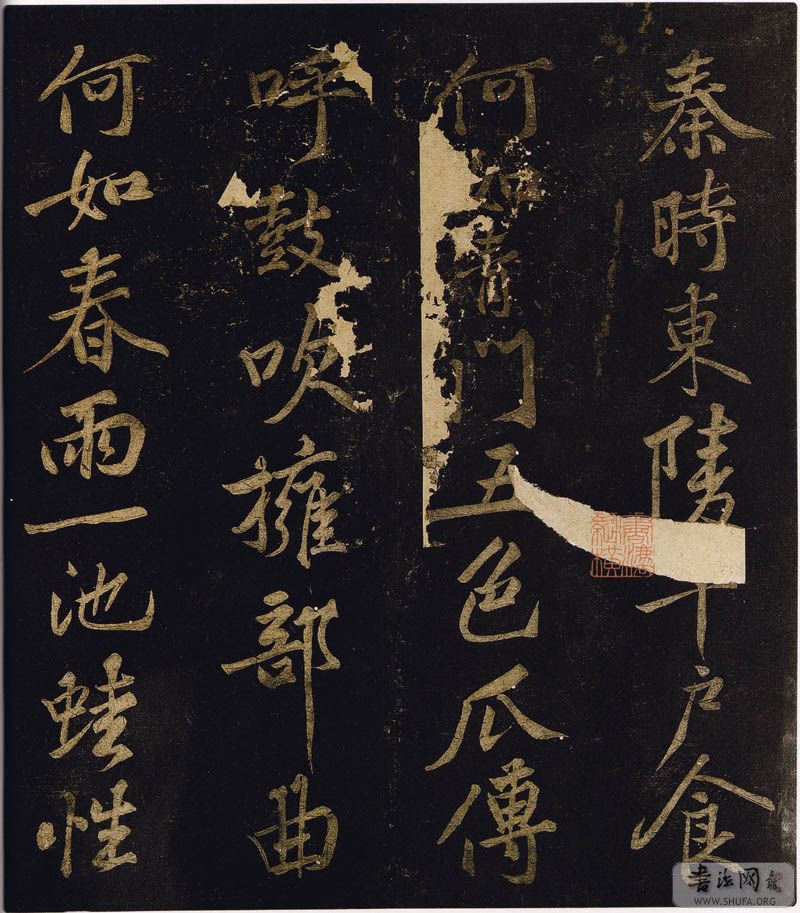 秦時東陵千戶食
何如青門五色瓜傳
呼鼓吹擁部曲
何如春雨一池蛙性
書法网
WWW.SHUFA.ORG